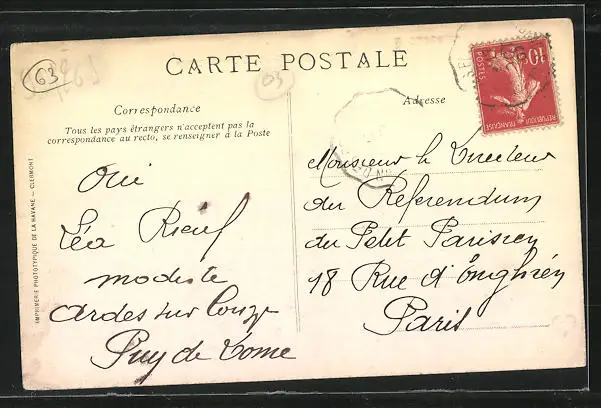 CARTE POSTALE
63
03
Correspondance
Tous les pays étrangers n'acceptent pas la
correspondance au recto, se renseigner à la Poste
Oui
Léa Rieuf
modiste
Ardes sur Couze
Puy de Dome
Adresse
Monsieur le Directeur
du Referendum
du Petit Parisien
18 Rue d'Enghien
Paris
IMPRIMERIE PHOTOTYPIQUE DE LA HAVANE — CLERMONT
10c
POSTES
REPUBLIQUE FRANÇAISE